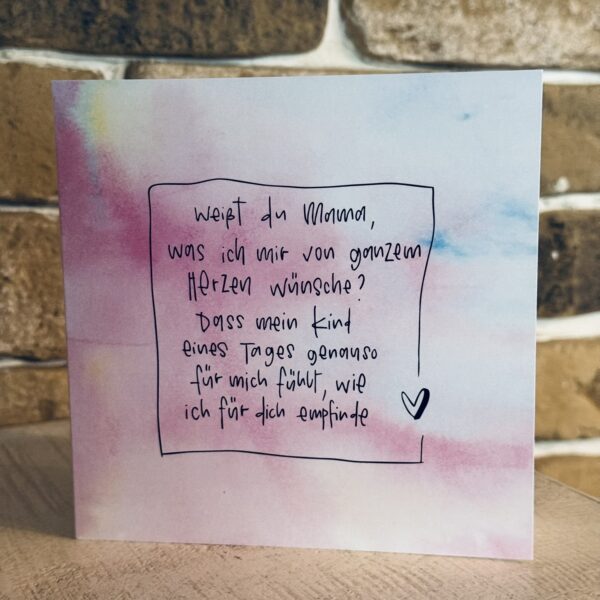 weißt du Mama,
was ich mir von ganzem
Herzen wünsche?
Dass mein Kind
eines Tages genauso
für mich fühlt, wie
ich für dich empfinde